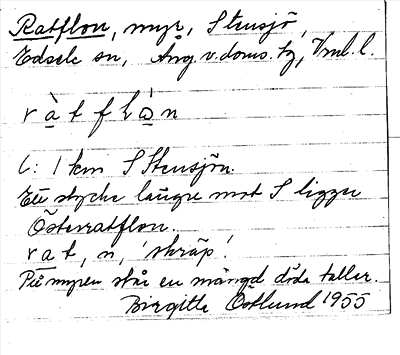 Ratflon, myr, Stensjö,
Edsele sn, Ång v. doms. tg, Vnl. l.
r à t f l ò n
L: 1 km S Stensjön.
Ett stycke längre mot S ligger
Österratflon.
rat, n, 'skräp'.
På myren står en mängd döda tallar.
Birgitta Östlund 1955